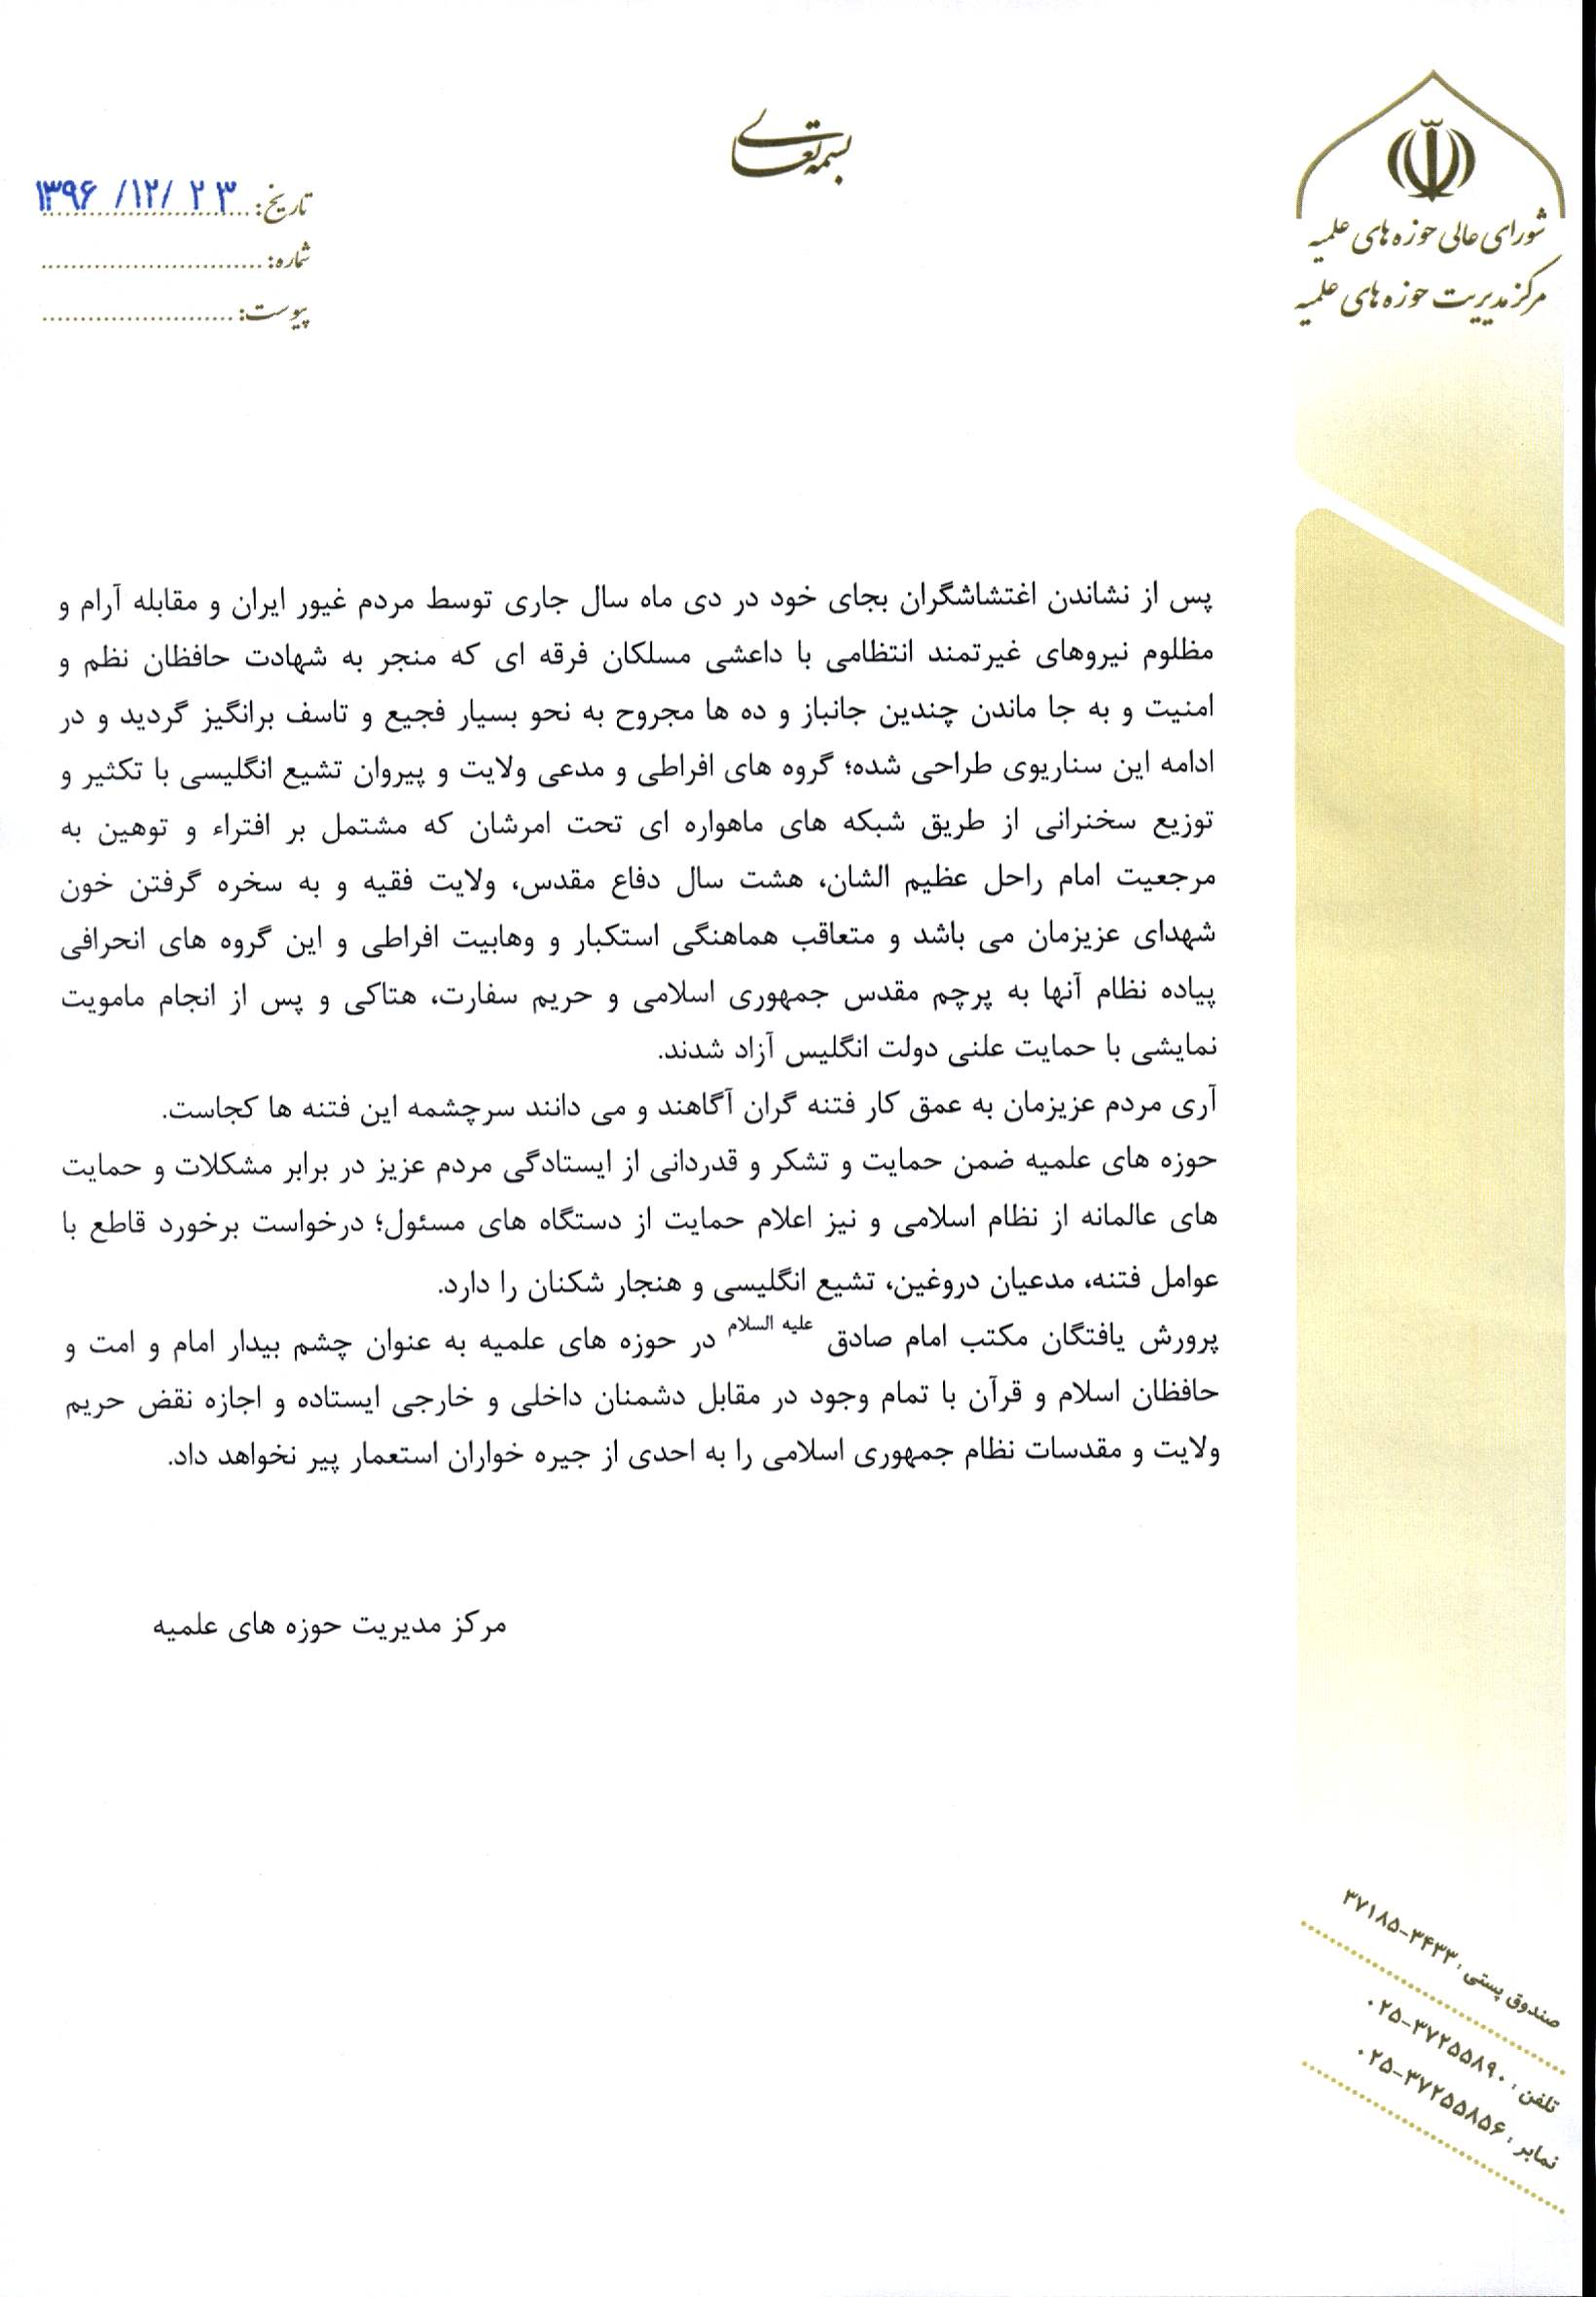 بسمه تعالی
شورای عالی حوزه های علمیه
مرکز مدیریت حوزه های علمیه
تاریخ: ۱۳۹۶/۱۲/۲۳
شماره:
پیوست:
پس از نشاندن اغتشاشگران بجای خود در دی ماه سال جاری توسط مردم غیور ایران و مقابله آرام و
مظلوم نیروهای غیرتمند انتظامی با داعشی مسلکان فرقه ای که منجر به شهادت حافظان نظم و
امنیت و به جا ماندن چندین جانباز و ده ها مجروح به نحو بسیار فجیع و تاسف برانگیز گردید و در
ادامه این سناریوی طراحی شده؛ گروه های افراطی و مدعی ولایت و پیروان تشیع انگلیسی با تکثیر و
توزیع سخنرانی از طریق شبکه های ماهواره ای تحت امرشان که مشتمل بر افتراء و توهین به
مرجعیت امام راحل عظیم الشان، هشت سال دفاع مقدس، ولایت فقیه و به سخره گرفتن خون
شهدای عزیزمان می باشد و متعاقب هماهنگی استکبار و وهابیت افراطی و این گروه های انحرافی
پیاده نظام آنها به پرچم مقدس جمهوری اسلامی و حریم سفارت، هتاکی و پس از انجام مامویت
نمایشی با حمایت علنی دولت انگلیس آزاد شدند.
آری مردم عزیزمان به عمق کار فتنه گران آگاهند و می دانند سرچشمه این فتنه ها کجاست.
حوزه های علمیه ضمن حمایت و تشکر و قدردانی از ایستادگی مردم عزیز در برابر مشکلات و حمایت
های عالمانه از نظام اسلامی و نیز اعلام حمایت از دستگاه های مسئول؛ درخواست برخورد قاطع با
عوامل فتنه، مدعیان دروغین، تشیع انگلیسی و هنجار شکنان را دارد.
پرورش یافتگان مکتب امام صادق علیه السلام در حوزه های علمیه به عنوان چشم بیدار امام و امت و
حافظان اسلام و قرآن با تمام وجود در مقابل دشمنان داخلی و خارجی ایستاده و اجازه نقض حریم
ولایت و مقدسات نظام جمهوری اسلامی را به احدی از جیره خواران استعمار پیر نخواهد داد.
مرکز مدیریت حوزه های علمیه
صندوق پستی : ۳۷۱۸۵-۳۴۳۳
تلفن : ۰۲۵-۳۷۲۵۵۸۹۰
نمابر : ۰۲۵-۳۷۲۵۵۸۵۶